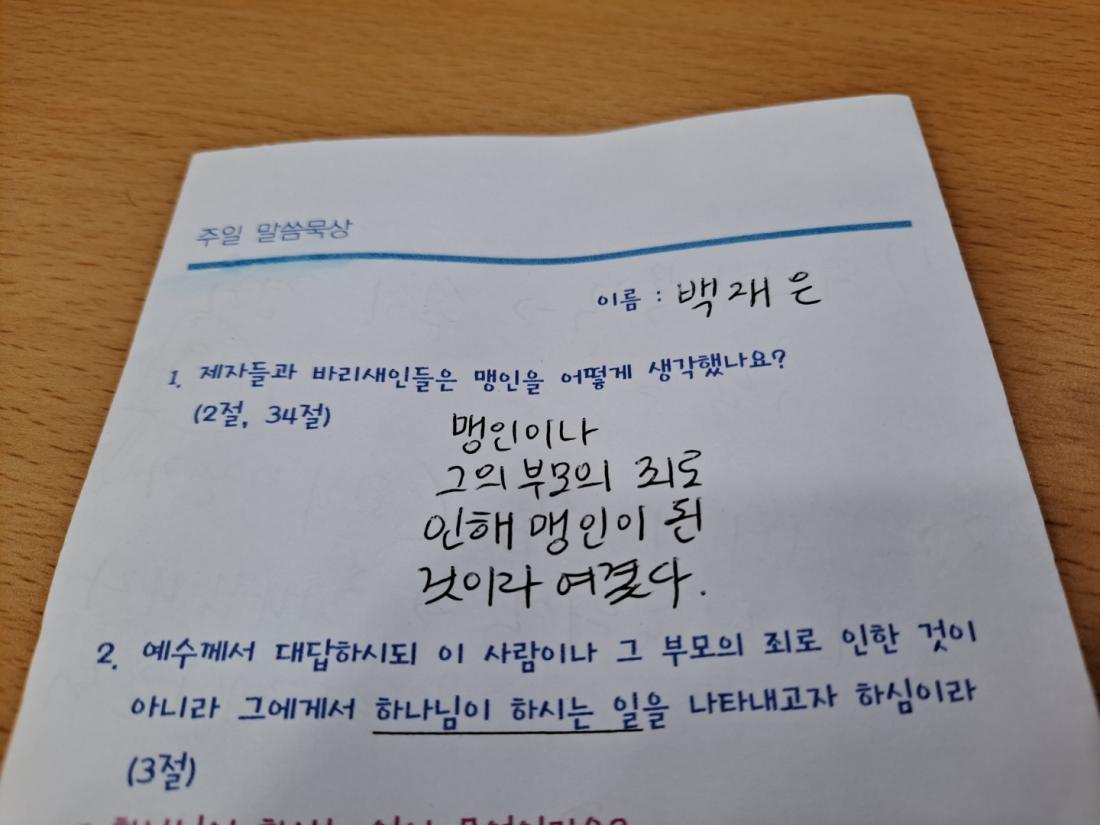 주일 말씀묵상
이름 : 백재은
1. 제자들과 바리새인들은 맹인을 어떻게 생각했나요?
(2절, 34절)
맹인이나
그의 부모의 죄로
인해 맹인이 된
것이라 여겼다.
2. 예수께서 대답하시되 이 사람이나 그 부모의 죄로 인한 것이
아니라 그에게서 하나님이 하시는 일을 나타내고자 하심이라
(3절)